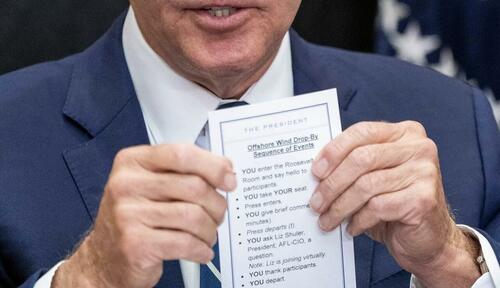 THE PRESIDENT
Offshore Wind Drop-By
Sequence of Events
YOU enter the Roosevelt
Room and say hello to
participants.
YOU take YOUR seat.
Press enters.
YOU give brief comments
minutes).
Press departs (t)
YOU ask Liz Shuler,
President, AFL-CIO, a
question
Note: Liz is joining virtually.
YOU thank participants.
YOU depart.